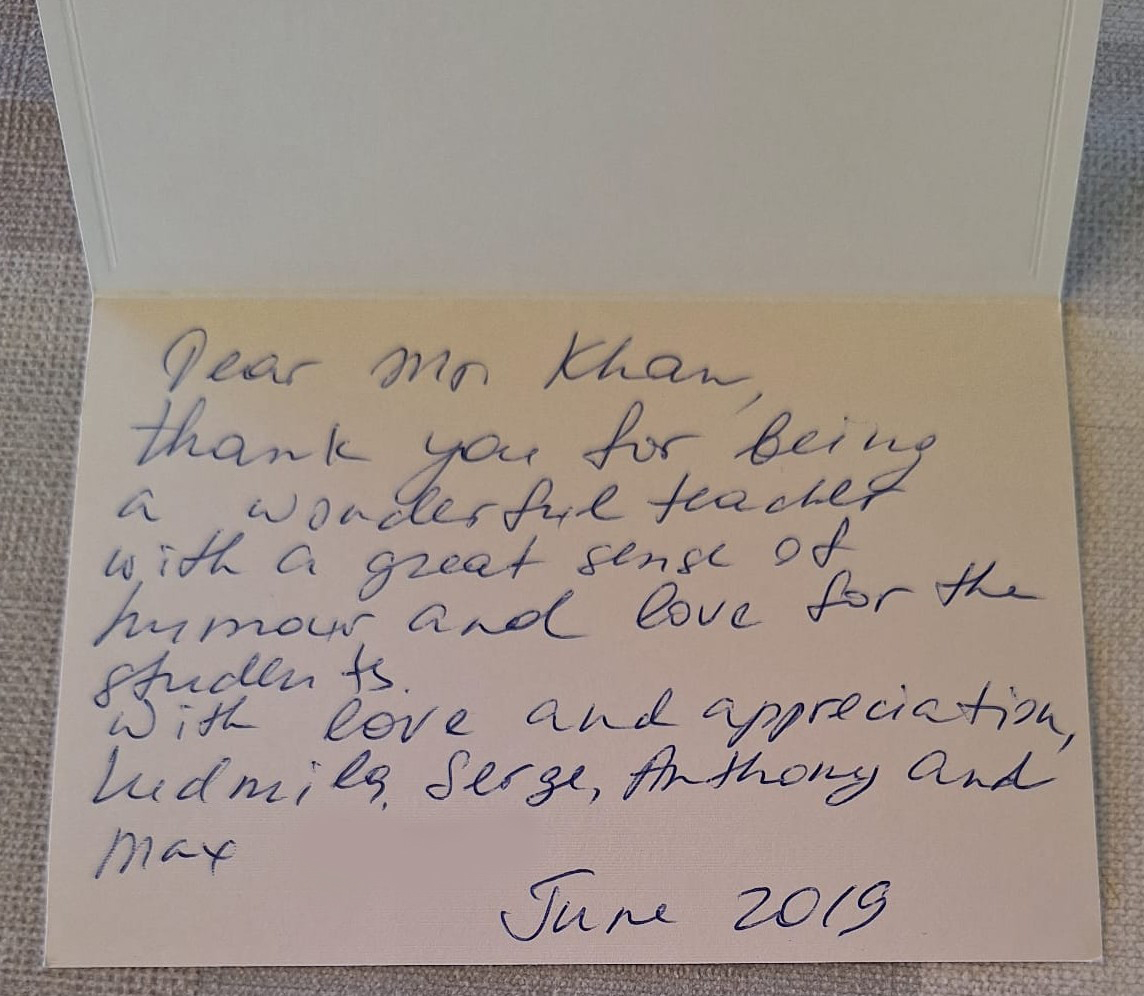 Dear Mr. Khan,
thank you for being
a wonderful teacher
with a great sense of
humour and love for the
students.
With love and appreciation,
Ludmila, Serge, Anthony and
Max
June 2019